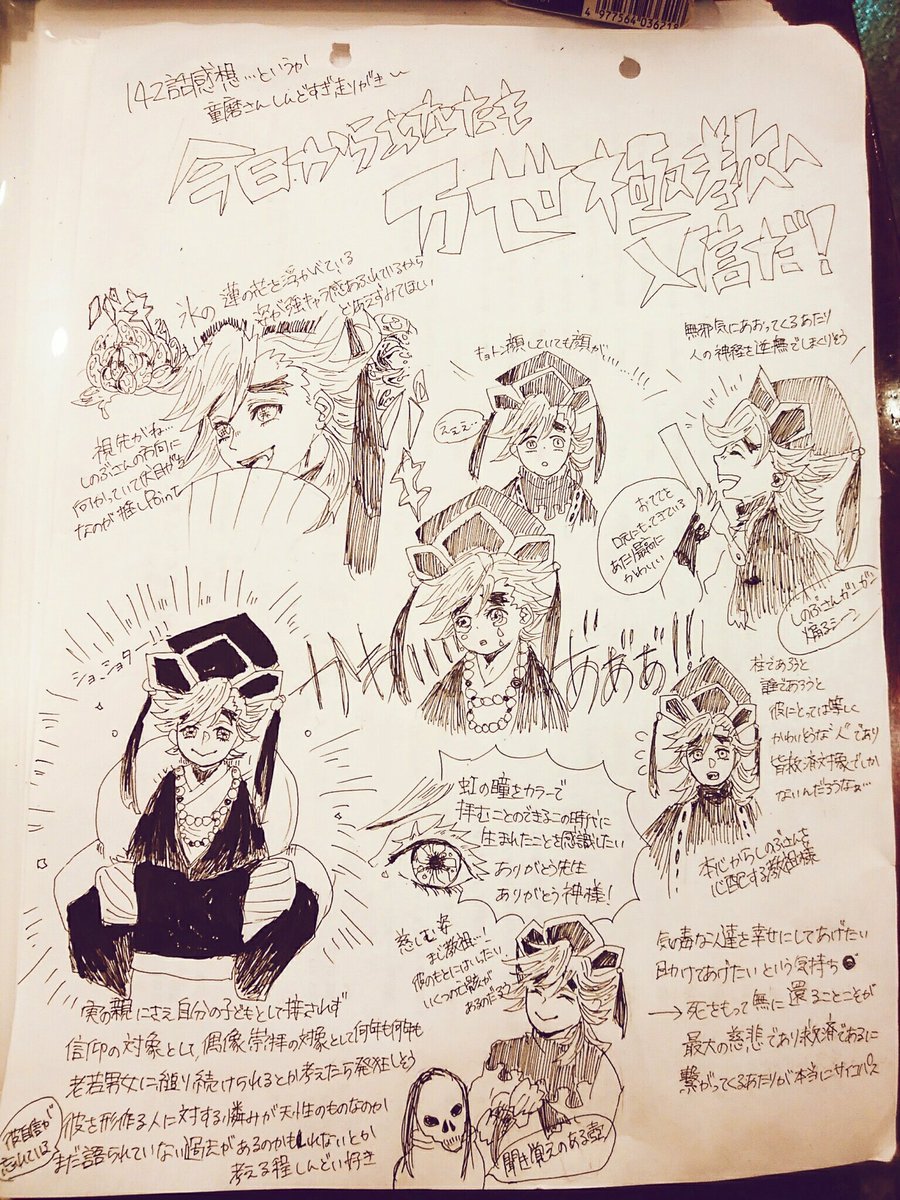 4 977564 036219
142話感想…というか
童磨さんしんどすぎ走りがき
今日から
万世極楽教へ
入信だ!
氷の蓮の花を浮かべている
姿が強キャラ感あふれているから
とりあえずみてほしい
視先がね…
しのぶさんの方向に
向かっていて伏目がち
なのが推しPoint
キョトン顔していても顔がいい…!!!
えぇぇ…
無邪気にあおってくるあたり
人の神経を逆撫でしまくりそう
おててを
口元にもってきている
あたり最高に
かわいい
しのぶさんが
煽るシーン
ショ、ショタ…!!!
かわ
ああぁ!!
柱であろうと
誰であろうと
彼にとっては等しく
かわいそうな"人"であり
皆救済対象でしか
ないんだろうなぁ…
本心からしのぶさんを
心配する教祖様
虹の瞳をカラーで
拝むことのできるこの時代に
生まれたことを感謝したい
ありがとう先生
ありがとう神様!
慈しむ姿
まじ教祖…!
彼のもとにはいったい
いくつの亡骸が
あるのだろう
聞き覚えのある壺
気の毒な人達を幸せにしてあげたい
助けてあげたいという気持ち
→死をもって無に還ることこそが
最大の慈悲であり救済であるに
繋がってくるあたりが本当にサイコパス
実の親にさえ自分の子どもとして接されず
信仰の対象として、偶像崇拝の対象として何年も何年も
老若男女に縋り続けられるとか考えたら発狂しそう
彼を形作る人に対する憐みが天性のものなのか
まだ語られていない過去があるのかもしれないとか
考える程しんどい好き
彼自信が
忘れている